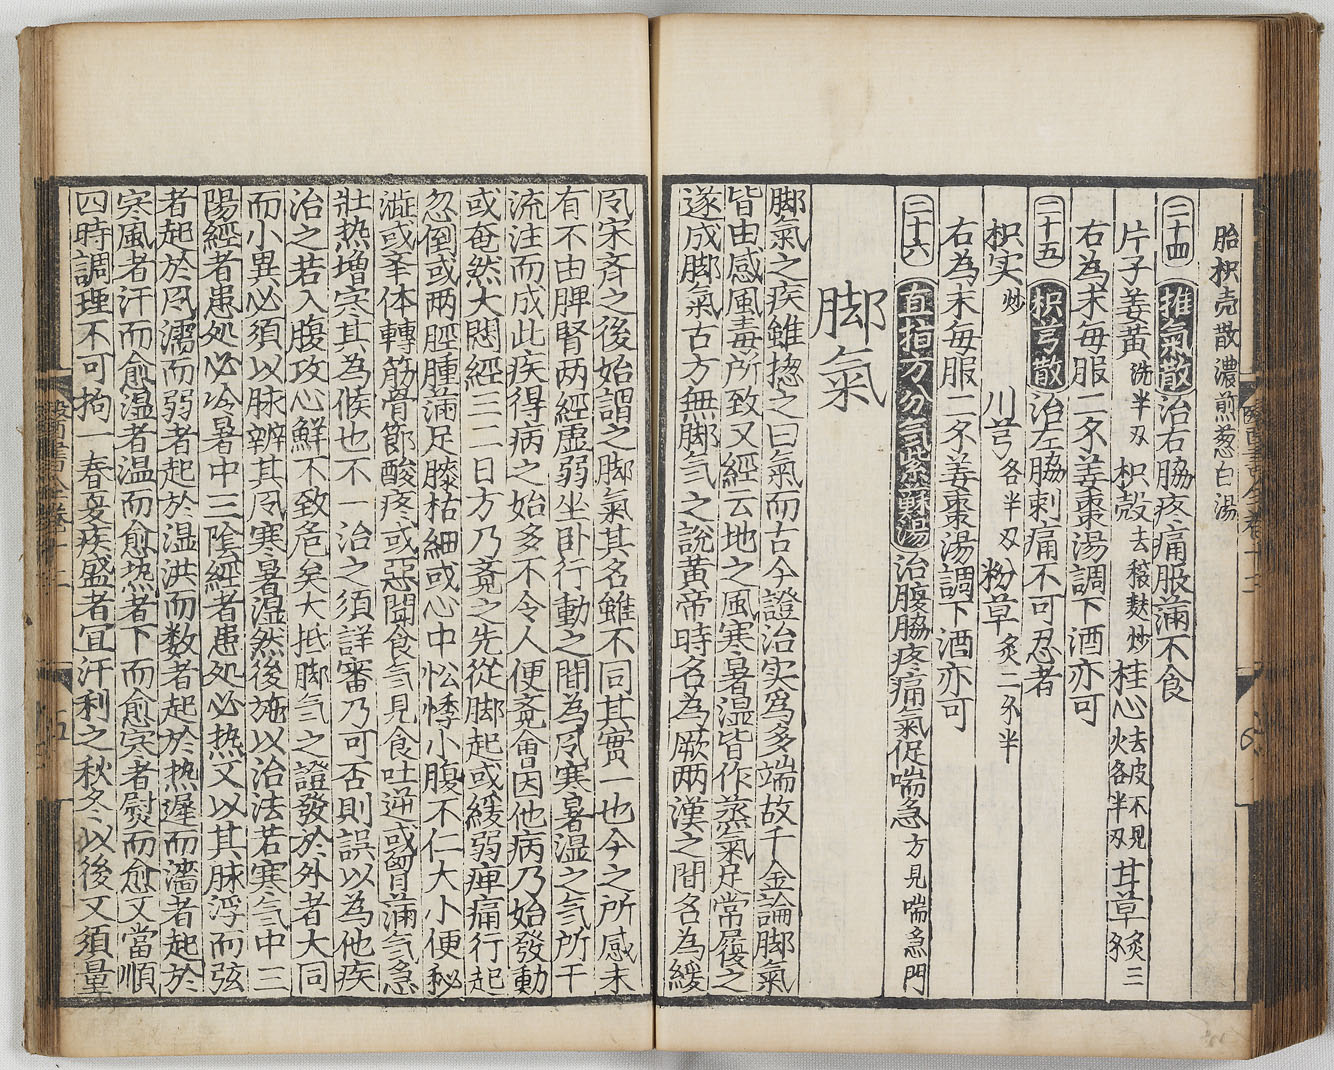 胎枳壳散濃煎葱白湯
二十四 推氣散 治右脇疼痛脹滿不食
片子姜黃洗半刄 枳殼去穣麩炒 桂心去皮不見火各半刄 甘草炙三分
右為末每服二分姜棗湯調下酒亦可
二十五 枳芎散 治左脇刺痛不可忍者
枳实炒 川芎各半刄 粉草炙二分半
右為末每服二分姜棗湯調下酒亦可
二十六 直指方分气紫蘇湯 治腹脇疼痛氣促喘急方見喘急門
脚氣
脚氣之疾雖揔之曰氣而古今證治实為多端故千金論脚氣
皆由感風毒所致又經云地之風寒暑湿皆作蒸氣足常履之
遂成脚氣古方無脚气之說黃帝時名為厥两漢之間名為緩
風宋齐之後始謂之脚氣其名雖不同其實一也今之所感未
有不由脾腎两經虛弱坐卧行動之間為风寒暑湿之气所干
流注而成此疾得病之始多不令人便覔會因他病乃始發動
或奄然大悶經三二日方乃覔之先從脚起或緩弱痺痛行起
忽倒或两脛腫滿足膝枯細或心中忪悸小腹不仁大小便秘
澁或举体轉筋骨節酸疼或惡聞食气見食吐逆或胷滿气急
壯热增寒其為候也不一治之須詳審乃可否則誤以為他疾
治之若入腹攻心鮮不致危矣大抵脚气之證發於外者大同
而小異必須以脉辨其风寒暑湿然後施以治法若寒气中三
陽經者患処必冷暑中三陰經者患処必热又以其脉浮而弦
者起於风濡而弱者起於湿洪而数者起於热遲而濇者起於
寒風者汗而愈湿者温而愈热者下而愈寒者熨而愈又當順
四時調理不可拘一春夏疾盛者宜汗利之秋冬以後又須量